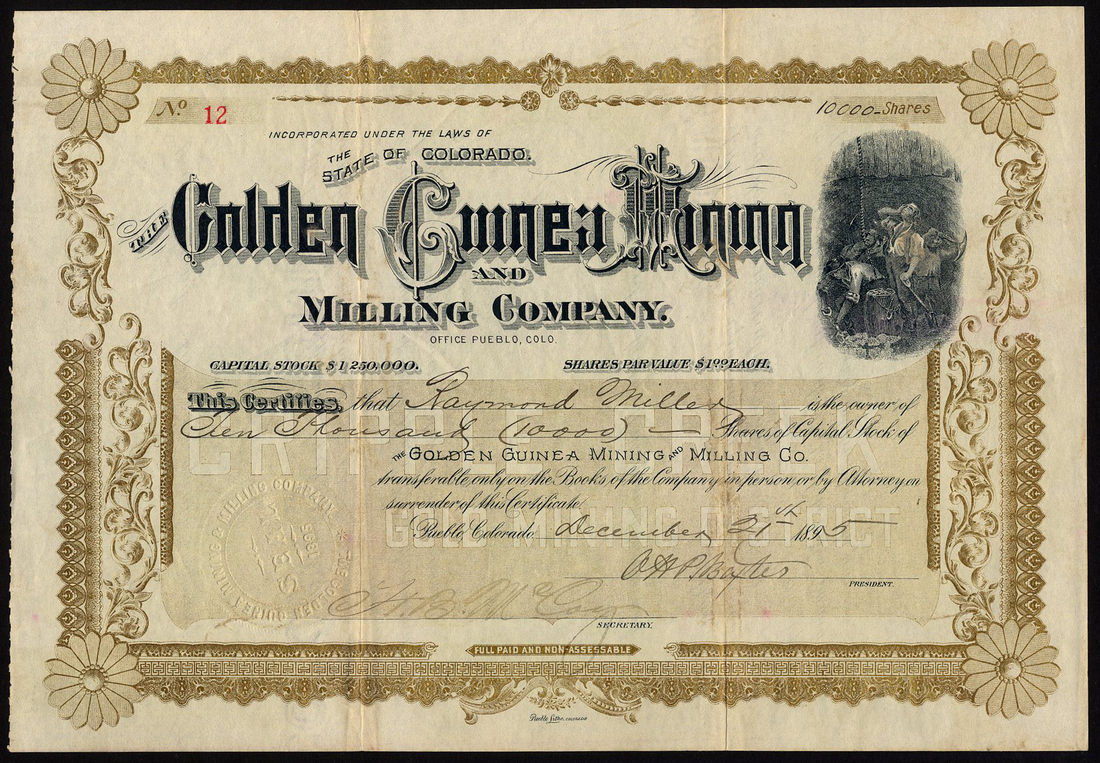 No 12
10000 - Shares
INCORPORATED UNDER THE LAWS OF
THE STATE OF COLORADO.
THE Golden Guinea Mining
AND
MILLING COMPANY.
OFFICE PUEBLO, COLO.
CAPITAL STOCK $1,250,000. SHARES PAR VALUE $1.00 EACH.
This Certifies, that Raymond Miller is the owner of
Ten Thousand (10000) — Shares of Capital Stock of
THE GOLDEN GUINEA MINING AND MILLING CO.
transferable only on the Books of the Company in person or by Attorney on
surrender of this Certificate.
Pueblo, Colorado December 21st 1895
CRIPPLE CREEK
GOLD MINING DISTRICT
O H P Baxter
PRESIDENT.
McCoy
SECRETARY.
THE GOLDEN GUINEA MINING & MILLING COMPANY
SEAL
1895
FULL PAID AND NON-ASSESSABLE
Pueblo Litho. COLORADO